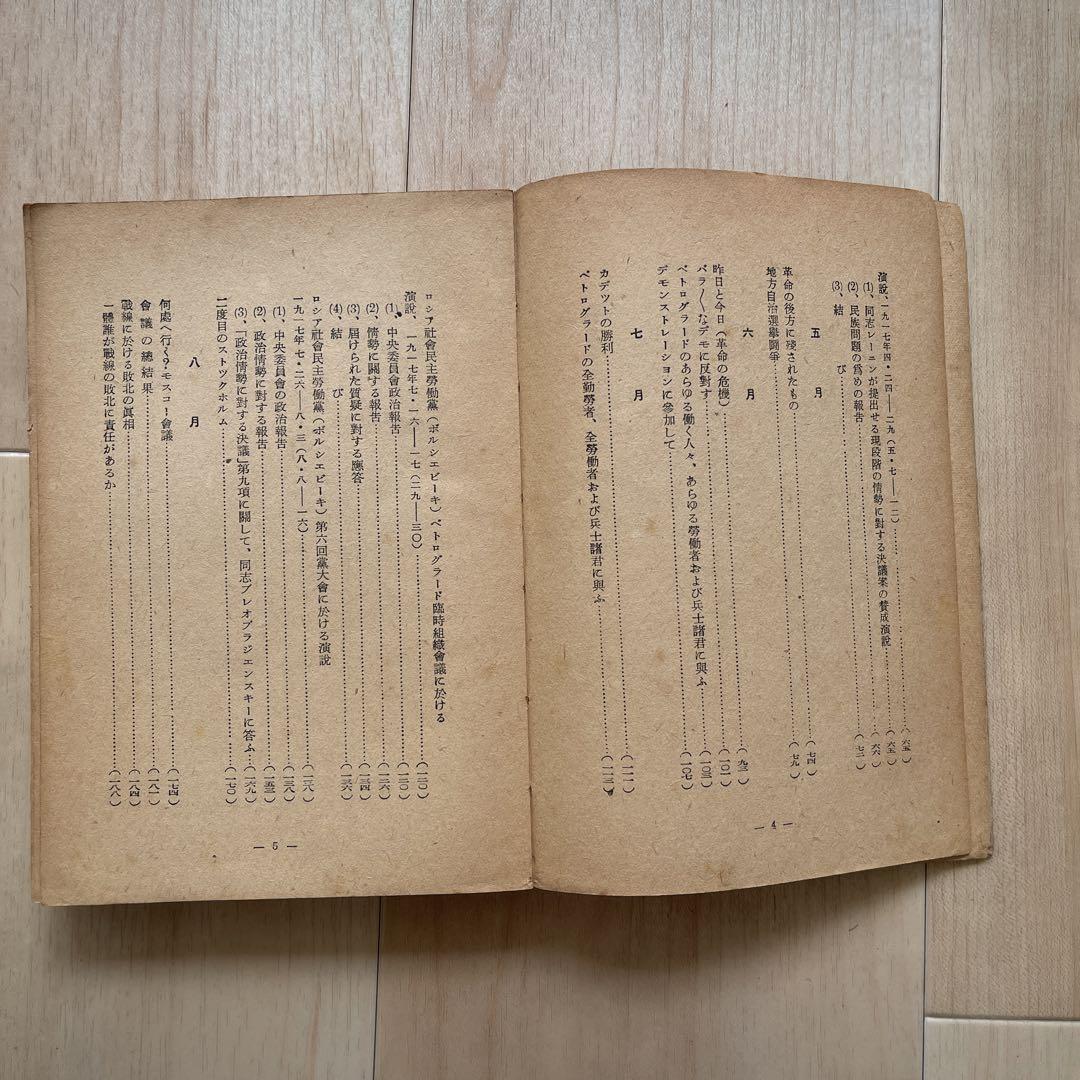 演説、一九一七年四・二四——二九(五・七——一二)……(六五)
(1)、同志レーニンが提出せる現段階の情勢に對する決議案の賛成演説……(六五)
(2)、民族問題の爲めの報告……(六六)
(3)、結び……(七二)
五月
革命の後方に殘されたもの……(七四)
地方自治選擧鬪爭……(七九)
六月
昨日と今日(革命の危機)……(九二)
バラ〳〵なデモに反對す……(一〇一)
ペトログラードのあらゆる働く人々、あらゆる勞働者および兵士諸君に與ふ……(一〇三)
デモンストレーションに參加して……(一〇七)
七月
カデツトの勝利……(一一一)
ペトログラードの全勤勞者、全勞働者および兵士諸君に與ふ……(一一三)
— 4 —
ロシア社會民主勞働黨(ボルシエビーキ)ペトログラード臨時組織會議に於ける
演説、一九一七年七・一六——一七(二九——三〇)……(一二〇)
(1)、中央委員會政治報告……(一二〇)
(2)、情勢に關する報告……(一二六)
(3)、屆けられた質疑に對する應答……(一三四)
(4)、結び……(一三六)
ロシア社會民主勞働黨(ボルシエビーキ)第六回黨大會に於ける演説
一九一七年七・二六——八・三(八・八——一六)……(一三八)
(1)、中央委員會の政治報告……(一三八)
(2)、政治情勢に對する報告……(一五三)
(3)、「政治情勢に對する決議」第九項に關して、同志プレオブラジエンスキーに答ふ……(一六九)
二度目のストツクホルム……(一七〇)
八月
何處へ行く?モスコー會議……(一七四)
會議の總結果……(一八一)
戰線に於ける敗北の眞相……(一八四)
一體誰が戰線の敗北に責任があるか……(一八八)
— 5 —